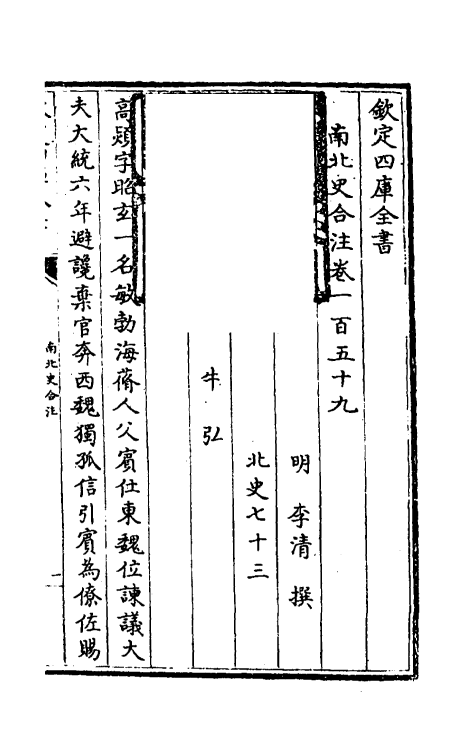 欽定四庫全書
南北史合注卷一百五十九
明 李清 撰
北史七十三
牛弘
高熲字昭玄一名敏勃海蓨人父賓仕東魏位諫議大
夫大統六年避讒棄官奔西魏獨孤信引賓為僚佐賜
南北史合注
一